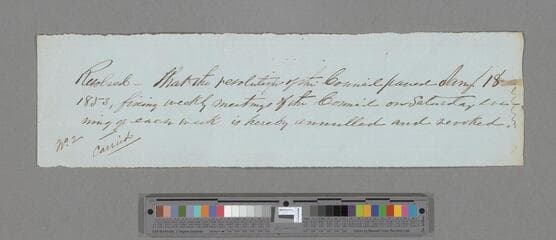 Resolved – That the resolution of the Council passed Jany 18
1853, fixing weekly meetings of the Council on Saturday eve
ning of each week is hereby annulled and revoked.
No. 2
Carried